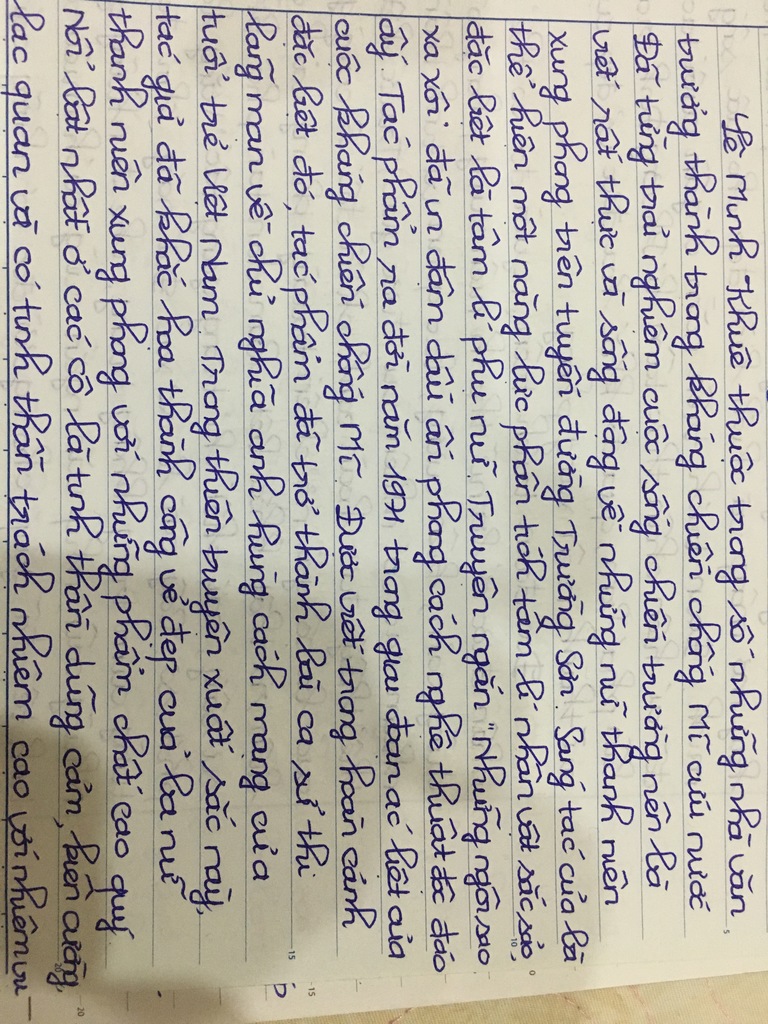 Lê Minh Khuê thuộc trong số những nhà văn
trưởng thành trong kháng chiến chống Mĩ cứu nước
Đã từng trải nghiệm cuộc sống chiến trường nên bà
viết rất thực và sống động về những nữ thanh niên
xung phong trên tuyến đường Trường Sơn. Sáng tác của bà
thể hiện một năng lực phân tích tâm lí nhân vật sắc sảo,
đặc biệt là tâm lí phụ nữ. Truyện ngắn "Những ngôi sao
xa xôi" đã in đậm dấu ấn phong cách nghệ thuật độc đáo
ấy. Tác phẩm ra đời năm 1971 trong giai đoạn ác liệt của
cuộc kháng chiến chống Mĩ. Được viết trong hoàn cảnh
đặc biệt đó, tác phẩm đã trở thành bài ca sử thi
lãng mạn về chủ nghĩa anh hùng cách mạng của
tuổi trẻ Việt Nam. Trong thiên truyện xuất sắc này,
tác giả đã khắc họa thành công vẻ đẹp của ba nữ
thanh niên xung phong với những phẩm chất cao quý.
Nổi bật nhất ở các cô là tinh thần dũng cảm, kiên cường,
lạc quan và có tinh thần trách nhiệm cao với nhiệm vụ